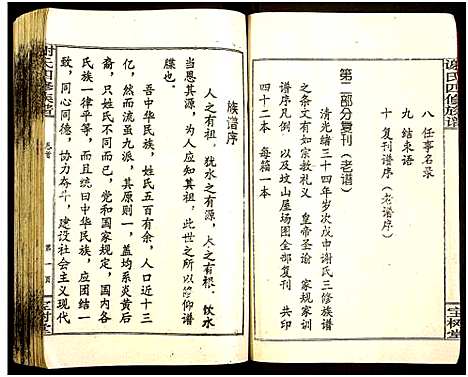 谢氏四修族谱
宝树堂
八 任事名录
九 结束语
十 复刊谱序（老谱序）
第二部分复刊（老谱）
清光绪三十四年岁次戊申谢氏三修族谱
之条文有如宗教礼义 皇帝圣谕 家规家训
谱序凡例 以及坟山屋场图全部复刊 共印
四十二本 每箱一本
族谱序
人之有祖，犹水之有源，木之有根。饮水
当思其源，为人应知其祖，此世之所以修仰谱
牒也。
吾中华民族，姓氏五百有余，人口近十三
亿，然而虽流九派，其原则一，盖均系炎黄后
裔，只姓氏不同而已。我党的政策，国内各
民族一律平等，故而统曰中华民族，应团结一
致，同心同德，协力奋斗，建设社会主义现代
谢氏四修族谱
卷首
第一页
宝树堂